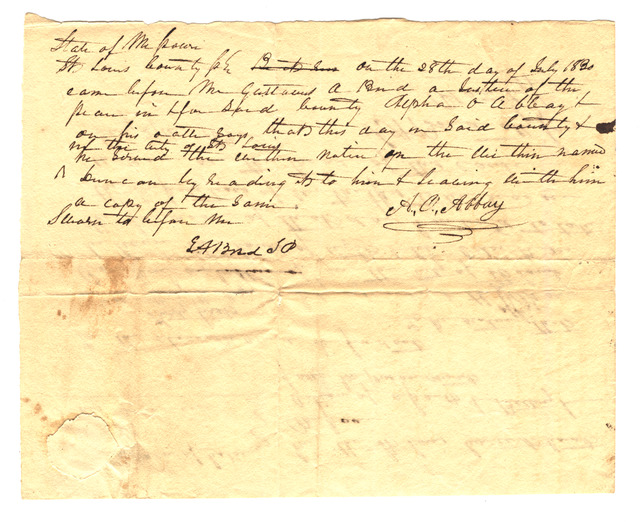 State of Missouri
St Louis County Sct on the 28th day of July 1830
came before me Gustavus A Bird a Justice of the
peace in & for said County Alpha O Abbay &
on his oath says, that this day in said County &
in the City of St Louis
he served the within notice on the within named
Duncan by reading it to him & leaving with him
a copy of the same A. O. Abbay
Sworn to before me
G A Bird J P